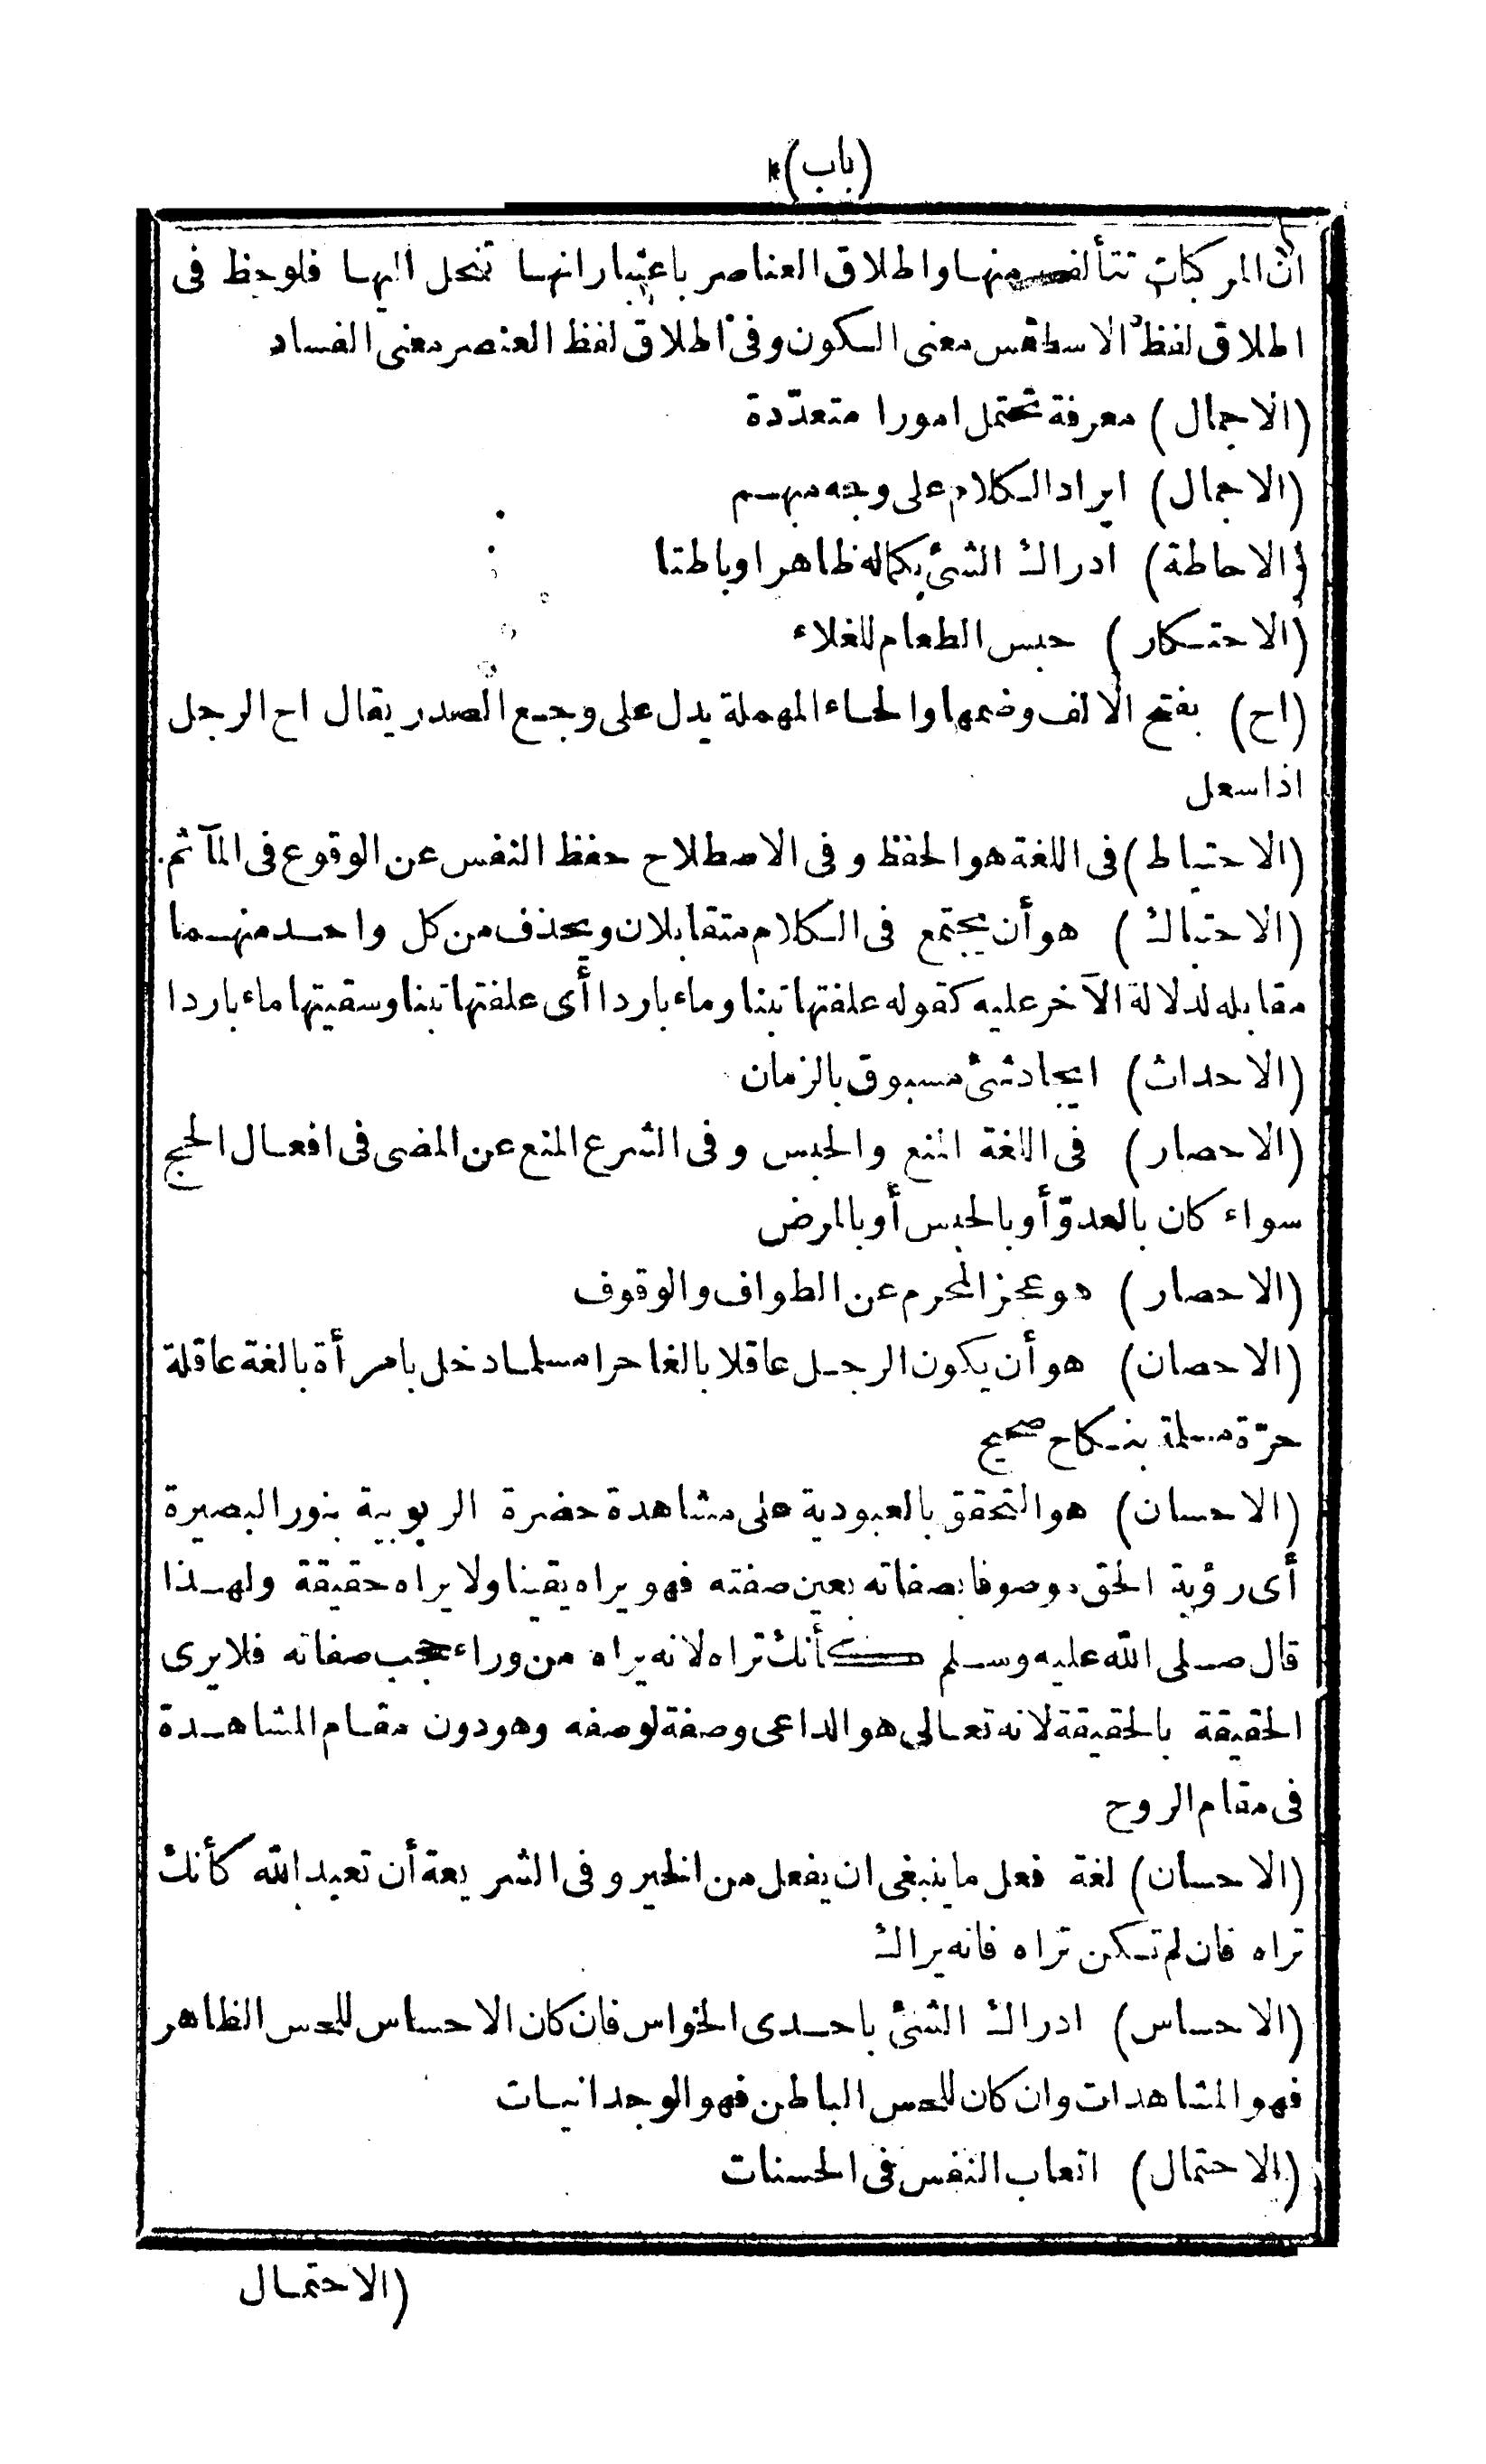 (باب)*
ان المركبات تتألف منها واطلاق العناصر باعتبار انها تنحل اليها فلوحظ فى
اطلاق لفظ الاسطقس معنى الكون وفى اطلاق لفظ العنصر معنى الفساد
(الاجمال) معرفة تحتمل امورا متعدّدة
(الاجمال) ايراد الكلام على وجه مبهم
(الاحاطة) ادراك الشئ بكماله ظاهرا وباطنا
(الاحتكار) حبس الطعام للغلاء
(اح) بفتح الالف وضمها والحاء المهملة يدل على وجع الصدر يقال اح الرجل
اذا سعل
(الاحتياط) فى اللغة هو الحفظ وفى الاصطلاح حفظ النفس عن الوقوع فى المآثم.
(الاحتباك) هو أن يجتمع فى الكلام متقابلان ويحذف من كل واحد منهما
مقابله لدلالة الآخر عليه كقوله علفتها تبنا وماء باردا أى علفتها تبنا وسقيتها ماء باردا
(الاحداث) ايجاد شئ مسبوق بالزمان
(الاحصار) فى اللغة المنع والحبس وفى الشرع المنع عن المضى فى افعال الحج
سواء كان بالعدوّ أو بالحبس أو بالمرض
(الاحصار) هو عجز المحرم عن الطواف والوقوف
(الاحصان) هو أن يكون الرجل عاقلا بالغا حرا مسلما دخل بامرأة بالغة عاقلة
حرّة مسلمة بنكاح صحيح
(الاحسان) هو التحقق بالعبودية على مشاهدة حضرة الربوبية بنور البصيرة
أى رؤية الحق موصوفا بصفاته بعين صفته فهو يراه يقينا ولا يراه حقيقة ولهذا
قال صلى الله عليه وسلم كأنك تراه لانه يراه من وراء حجب صفاته فلا يرى
الحقيقة بالحقيقة لانه تعالى هو الداعى وصفة لوصفه وهو دون مقام المشاهدة
فى مقام الروح
(الاحسان) لغة فعل ما ينبغى ان يفعل من الخير وفى الشريعة أن تعبد الله كأنك
تراه فان لم تكن تراه فانه يراك
(الاحساس) ادراك الشئ باحدى الحواس فان كان الاحساس للحس الظاهر
فهو المشاهدات وان كان للحس الباطن فهو الوجدانيات
(الاحتمال) اتعاب النفس فى الحسنات
(الاحتمال